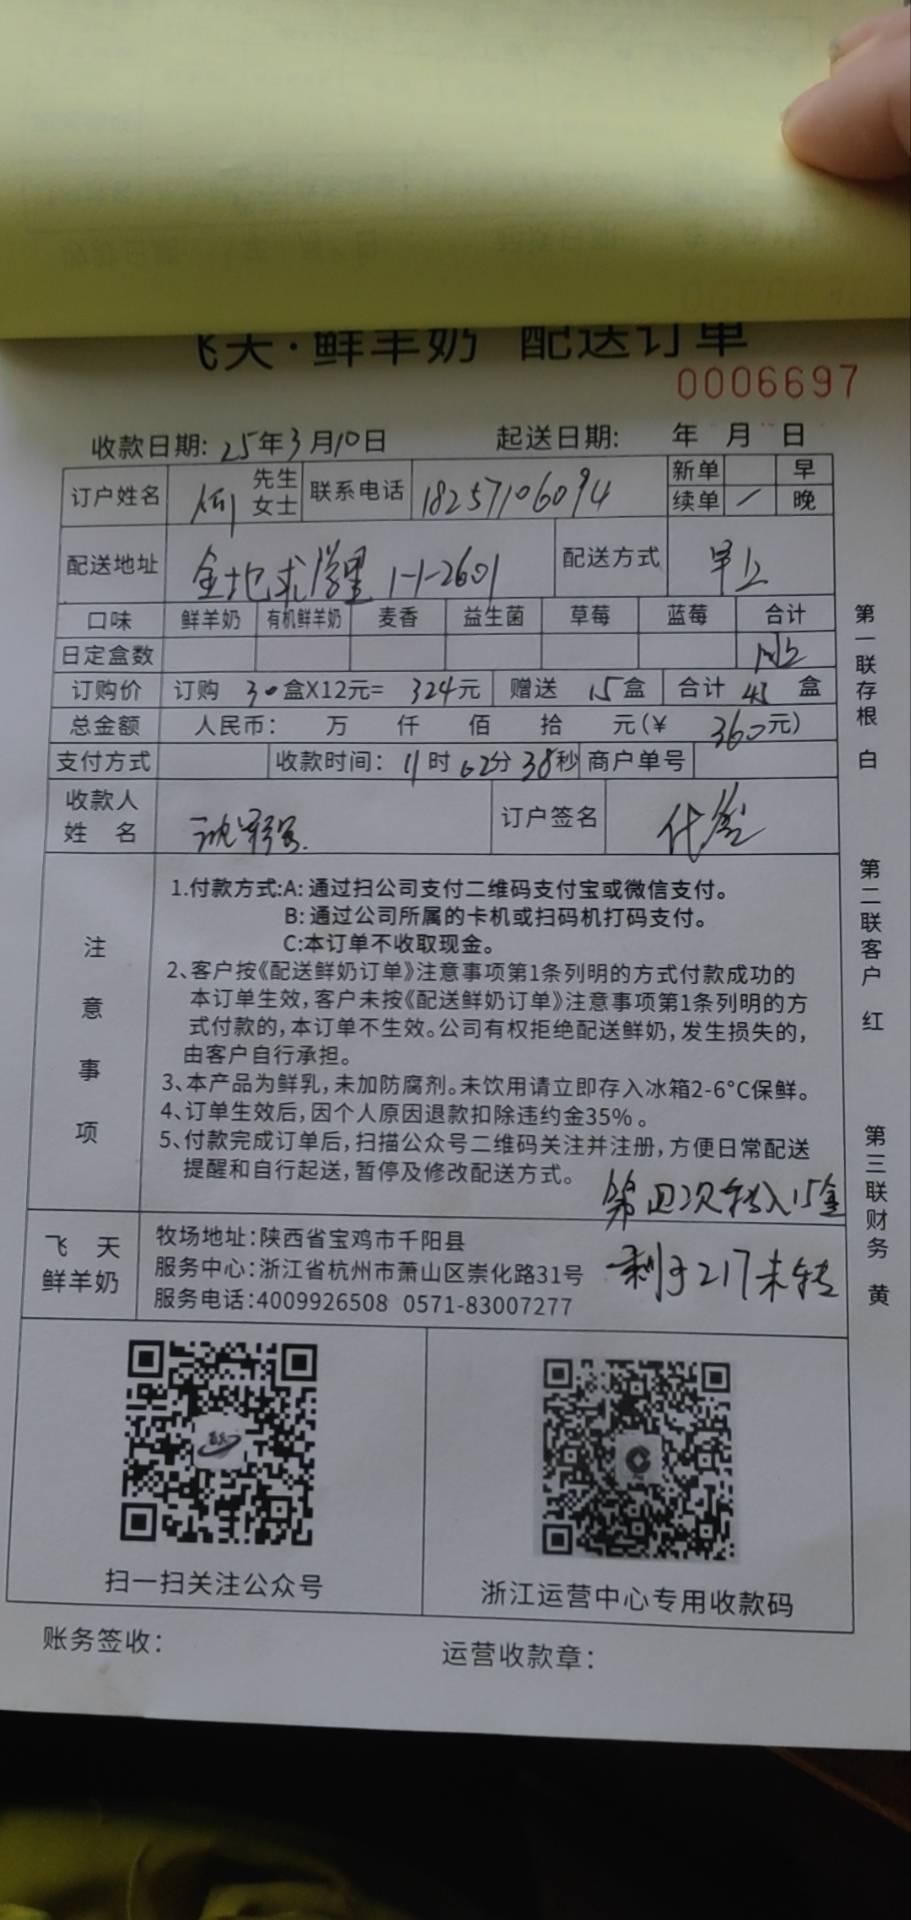 飞天·鲜羊奶 配送订单
0006697
收款日期: 25年3月10日 起送日期: 年 月 日
订户姓名 先生 女士 联系电话 18257106094 新单 早
续单 / 晚
配送地址 金地求学里 1-1-2601 配送方式 早上
口味 鲜羊奶 有机鲜羊奶 麦香 益生菌 草莓 蓝莓 合计
日定盒数
订购价 订购 30盒X12元= 324元 赠送 15盒 合计 45 盒
总金额 人民币: 万 仟 佰 拾 元(¥ 360元)
支付方式 收款时间: 11时02分38秒 商户单号
收款人
姓 名 订户签名 代签
注意事项
1.付款方式:A: 通过扫公司支付二维码支付宝或微信支付。
B: 通过公司所属的卡机或扫码机打码支付。
C:本订单不收取现金。
2、客户按《配送鲜奶订单》注意事项第1条列明的方式付款成功的
本订单生效,客户未按《配送鲜奶订单》注意事项第1条列明的方
式付款的,本订单不生效。公司有权拒绝配送鲜奶,发生损失的,
由客户自行承担。
3、本产品为鲜乳,未加防腐剂。未饮用请立即存入冰箱2-6°C保鲜。
4、订单生效后,因个人原因退款扣除违约金35%。
5、付款完成订单后,扫描公众号二维码关注并注册,方便日常配送
提醒和自行起送,暂停及修改配送方式。
第四次转入15盒
剩于217未转
飞 天
鲜羊奶
牧场地址:陕西省宝鸡市千阳县
服务中心:浙江省杭州市萧山区崇化路31号
服务电话:4009926508 0571-83007277
扫一扫关注公众号 浙江运营中心专用收款码
账务签收: 运营收款章:
第一联存根 白
第二联客户 红
第三联财务 黄